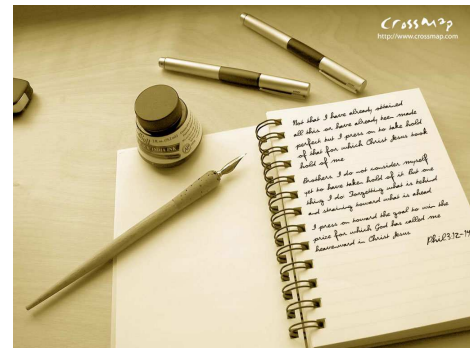 CrossMap
http://www.crossmap.com
Not that I have already attained
all this or have already been made
perfect but I press on to take hold
of that for which Christ Jesus took
hold of me
Brothers I do not consider myself
yet to have taken hold of it But one
thing I do Forgetting what is behind
and straining toward what is ahead
I press on toward the goal to win the
prize for which God has called me
heavenward in Christ Jesus
Phil3:12-14
INK